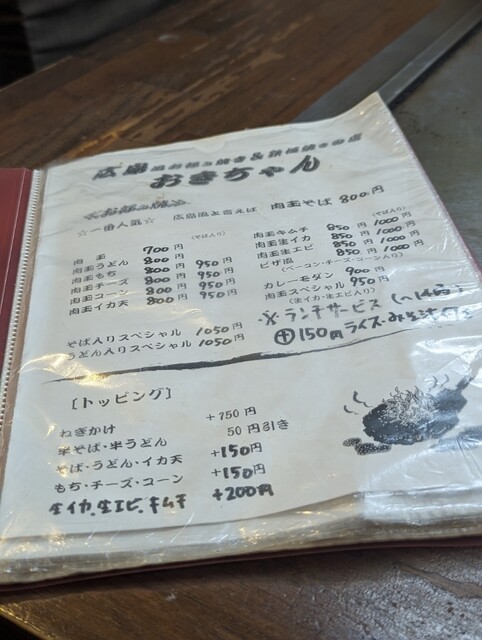 広島風お好み焼き&鉄板焼きの店
おきちゃん
<お好み焼>
☆一番人気☆ 広島風と言えば 肉玉そば 800円
(そば入り)
肉玉 700円
肉玉うどん 800円 950円
肉玉もち 800円 950円
肉玉チーズ 800円 950円
肉玉コーン 800円 950円
肉玉イカ天 800円
そば入りスペシャル 1050円
うどん入りスペシャル 1050円
(そば入り)
肉玉キムチ 850円 1000円
肉玉生イカ 850円 1000円
肉玉生エビ 850円 1000円
ピザ風 850円 1000円
(ベーコン・チーズ・コーン入り)
カレーモダン 900円
肉玉スペシャル 950円
(生イカ・生エビ入り)
※ランチサービス
⊕150円 ライス・みそ汁
[トッピング]
ねぎかけ +150円
半そば・半うどん 50円引き
そば・うどん・イカ天 +150円
もち・チーズ・コーン +150円
生イカ、生エビ、キムチ +200円